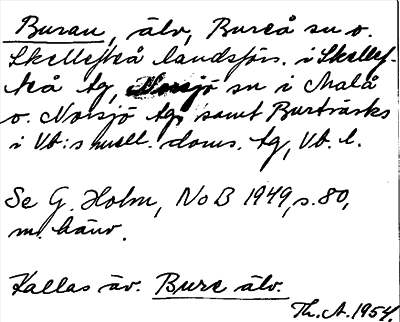 Buran, älv, Bureå sn o.
Skellefteå landsförs. i Skellef-
teå tg, Norsjö sn i Malå
o. Norsjö tg, samt Burträsks
i Vb:s mell. doms. tg, Vb. l.
Se G. Holm, NoB 1949, s. 80,
m. hänv.
Kallas äv. Bure älv.
Th. A. 1954.